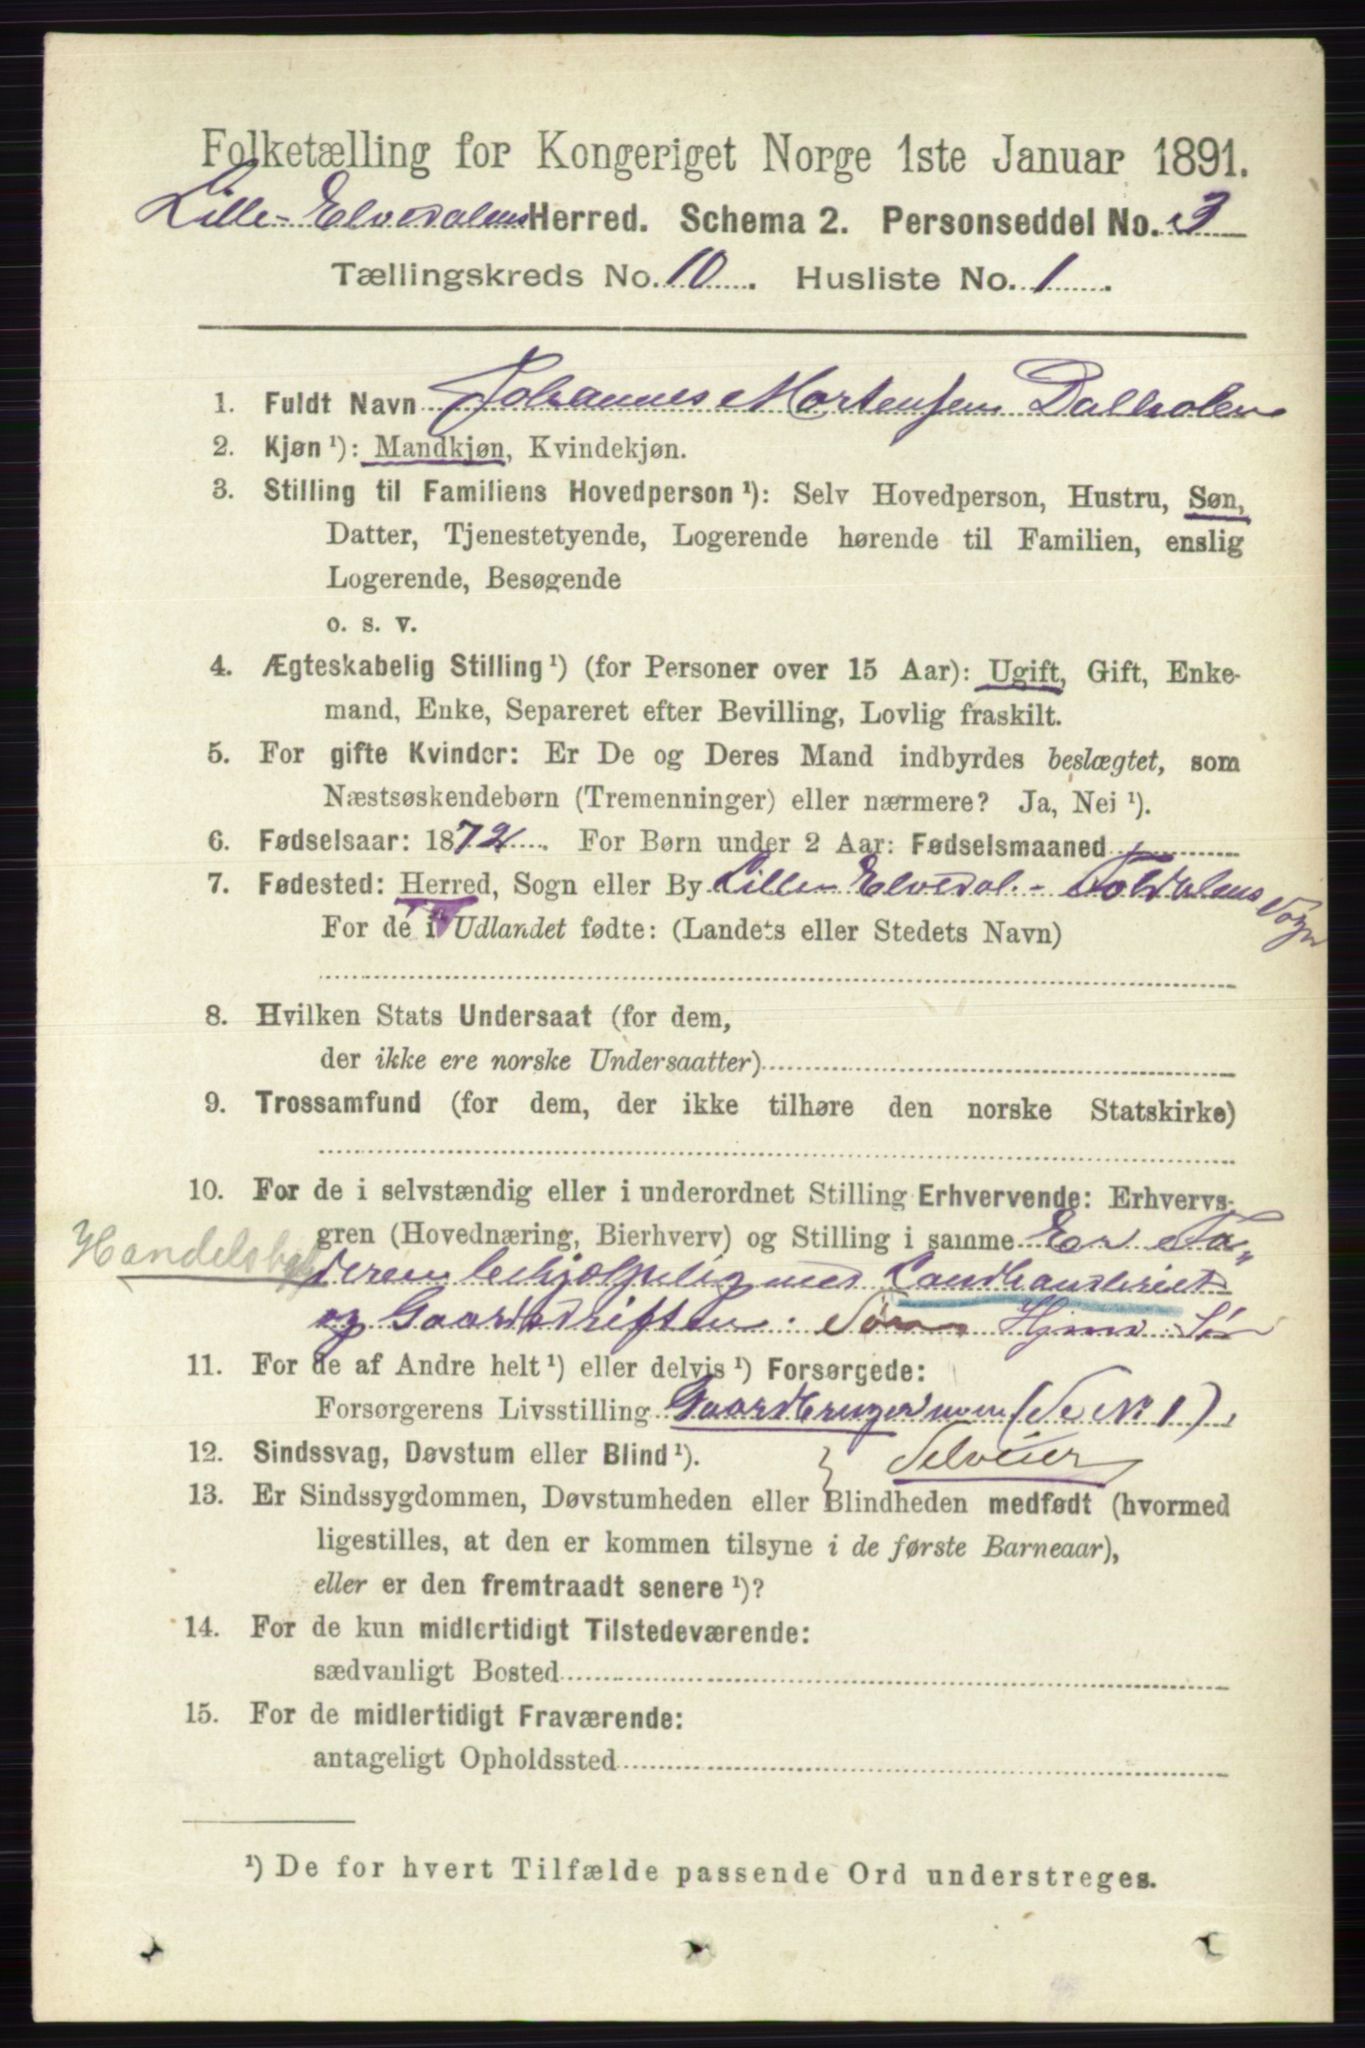 Folketælling for Kongeriget Norge 1ste Januar 1891.
Lille-Elvedalens Herred. Schema 2. Personseddel No. 3
Tællingskreds No. 10. Husliste No. 1.
1. Fuldt Navn Johannes Mortensen Dalholen
2. Kjøn ¹): Mandkjøn, Kvindekjøn.
3. Stilling til Familiens Hovedperson ¹): Selv Hovedperson, Hustru, Søn,
Datter, Tjenestetyende, Logerende hørende til Familien, enslig
Logerende, Besøgende
o. s. v.
4. Ægteskabelig Stilling ¹) (for Personer over 15 Aar): Ugift, Gift, Enke-
mand, Enke, Separeret efter Bevilling, Lovlig fraskilt.
5. For gifte Kvinder: Er De og Deres Mand indbyrdes beslægtet, som
Næstsøskendebørn (Tremenninger) eller nærmere? Ja, Nei ¹).
6. Fødselsaar: 1872. For Børn under 2 Aar: Fødselsmaaned
7. Fødested: Herred, Sogn eller By Lille-Elvedal. - Foldalens Sogn
For de i Udlandet fødte: (Landets eller Stedets Navn)
8. Hvilken Stats Undersaat (for dem,
der ikke ere norske Undersaatter)
9. Trossamfund (for dem, der ikke tilhøre den norske Statskirke)
10. For de i selvstændig eller i underordnet Stilling Erhvervende: Erhvervs-
gren (Hovednæring, Bierhverv) og Stilling i samme Er Fa-
deren behjælpelig med Landhandleriet
og Gaardsdriften.
11. For de af Andre helt ¹) eller delvis ¹) Forsørgede:
Forsørgerens Livsstilling Gaardbruger (Se N 1)
12. Sindssvag, Døvstum eller Blind ¹). } Selveier
13. Er Sindssygdommen, Døvstumheden eller Blindheden medfødt (hvormed
ligestilles, at den er kommen tilsyne i de første Barneaar),
eller er den fremtraadt senere ¹)?
14. For de kun midlertidigt Tilstedeværende:
sædvanligt Bosted
15. For de midlertidigt Fraværende:
antageligt Opholdssted
¹) De for hvert Tilfælde passende Ord understreges.